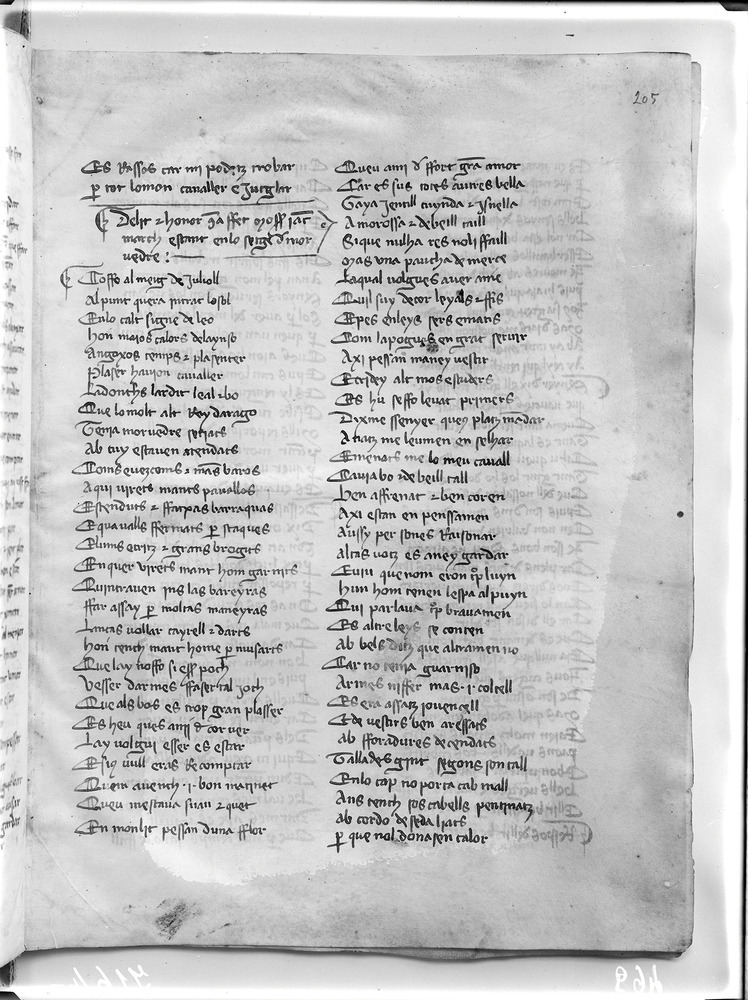 205
Es Rassos car mi podetz trobar
p tot lomon cavaller e Jutglar
Delit & honor qa ffet moss Jac
march estant enlo setge d mor
vedre :
Tosso al meyg de Juliol
Al punt quera intrat lo sol
Enlo calt signe de leo
hon maios calors delay so
Angoxos temps & plasenter
Plaser havion cavaller
Ladonchs lardit leal & bo
Que lo molt alt Rey darago
Tenia morvedre setiats
Ab tuy estaven atendats
Coms evezcoms & mas baros
Aqui virets mants pavallos
Estenduts & ffarpas barraquas
Equavalls ffermats p staques
E uins critz & grans brogits
Enquer virets mant hom garnits
Quintraven ins las bareyras
ffar assay p moltas maneyras
Lancas vollar cayrell & darts
hon tench mant home p musarts
Que lay ffosso si ess poch
Vesser darmes ffaser tal joch
Que als bos es trop gran plasser
Es heu ques ami d cor ver
Lay volgui esser es estar
E siq vull eras Recomptar
Quem avench · i · bon matinet
Queu mestava suau & quet
En mon lit pessan duna fflor
Queu ami d ffort gra amor
Car es sus totes autres bella
Gaya Jentill cuynda & Isnella
Amorossa & debeill taill
Si que nulha res noli ffaill
Mas una paucha de merce
Laqual volgues aver a me
Quil suy de cor leyals & ffis
E pes enleys sers e matis
Com la pogues en grat servir
Axi pessan maney vestir
E cridey alt mos escuders
Es hu se ffo levat primers
Dixme ssenyer queus platz mandar
Anatz me leumen en selhar
E menats me lo meu cavall
Cavia bo & de beill tall
ben affrenat & ben coren
Axi estan en penssamen
Aussy per sones Raisonar
altas votz es aney gardar
E viu que nom eron gp luyn
hun hom tenen lespa al puyn
Qui parlava gp bravamen
Es altre leys se conten
Ab bels ditz que altramen no
Car no tenia guarniso
Armes niffer mas · i · coltell
Es era assatz jovencell
E de vestirs ben aressats
ab fforadures de cendats
Tallades gint segons son tall
Enlo cap no porta cab mall
Ans tench sos cabells pentinatz
ab cordo de seda liats
p que nol donassen calor